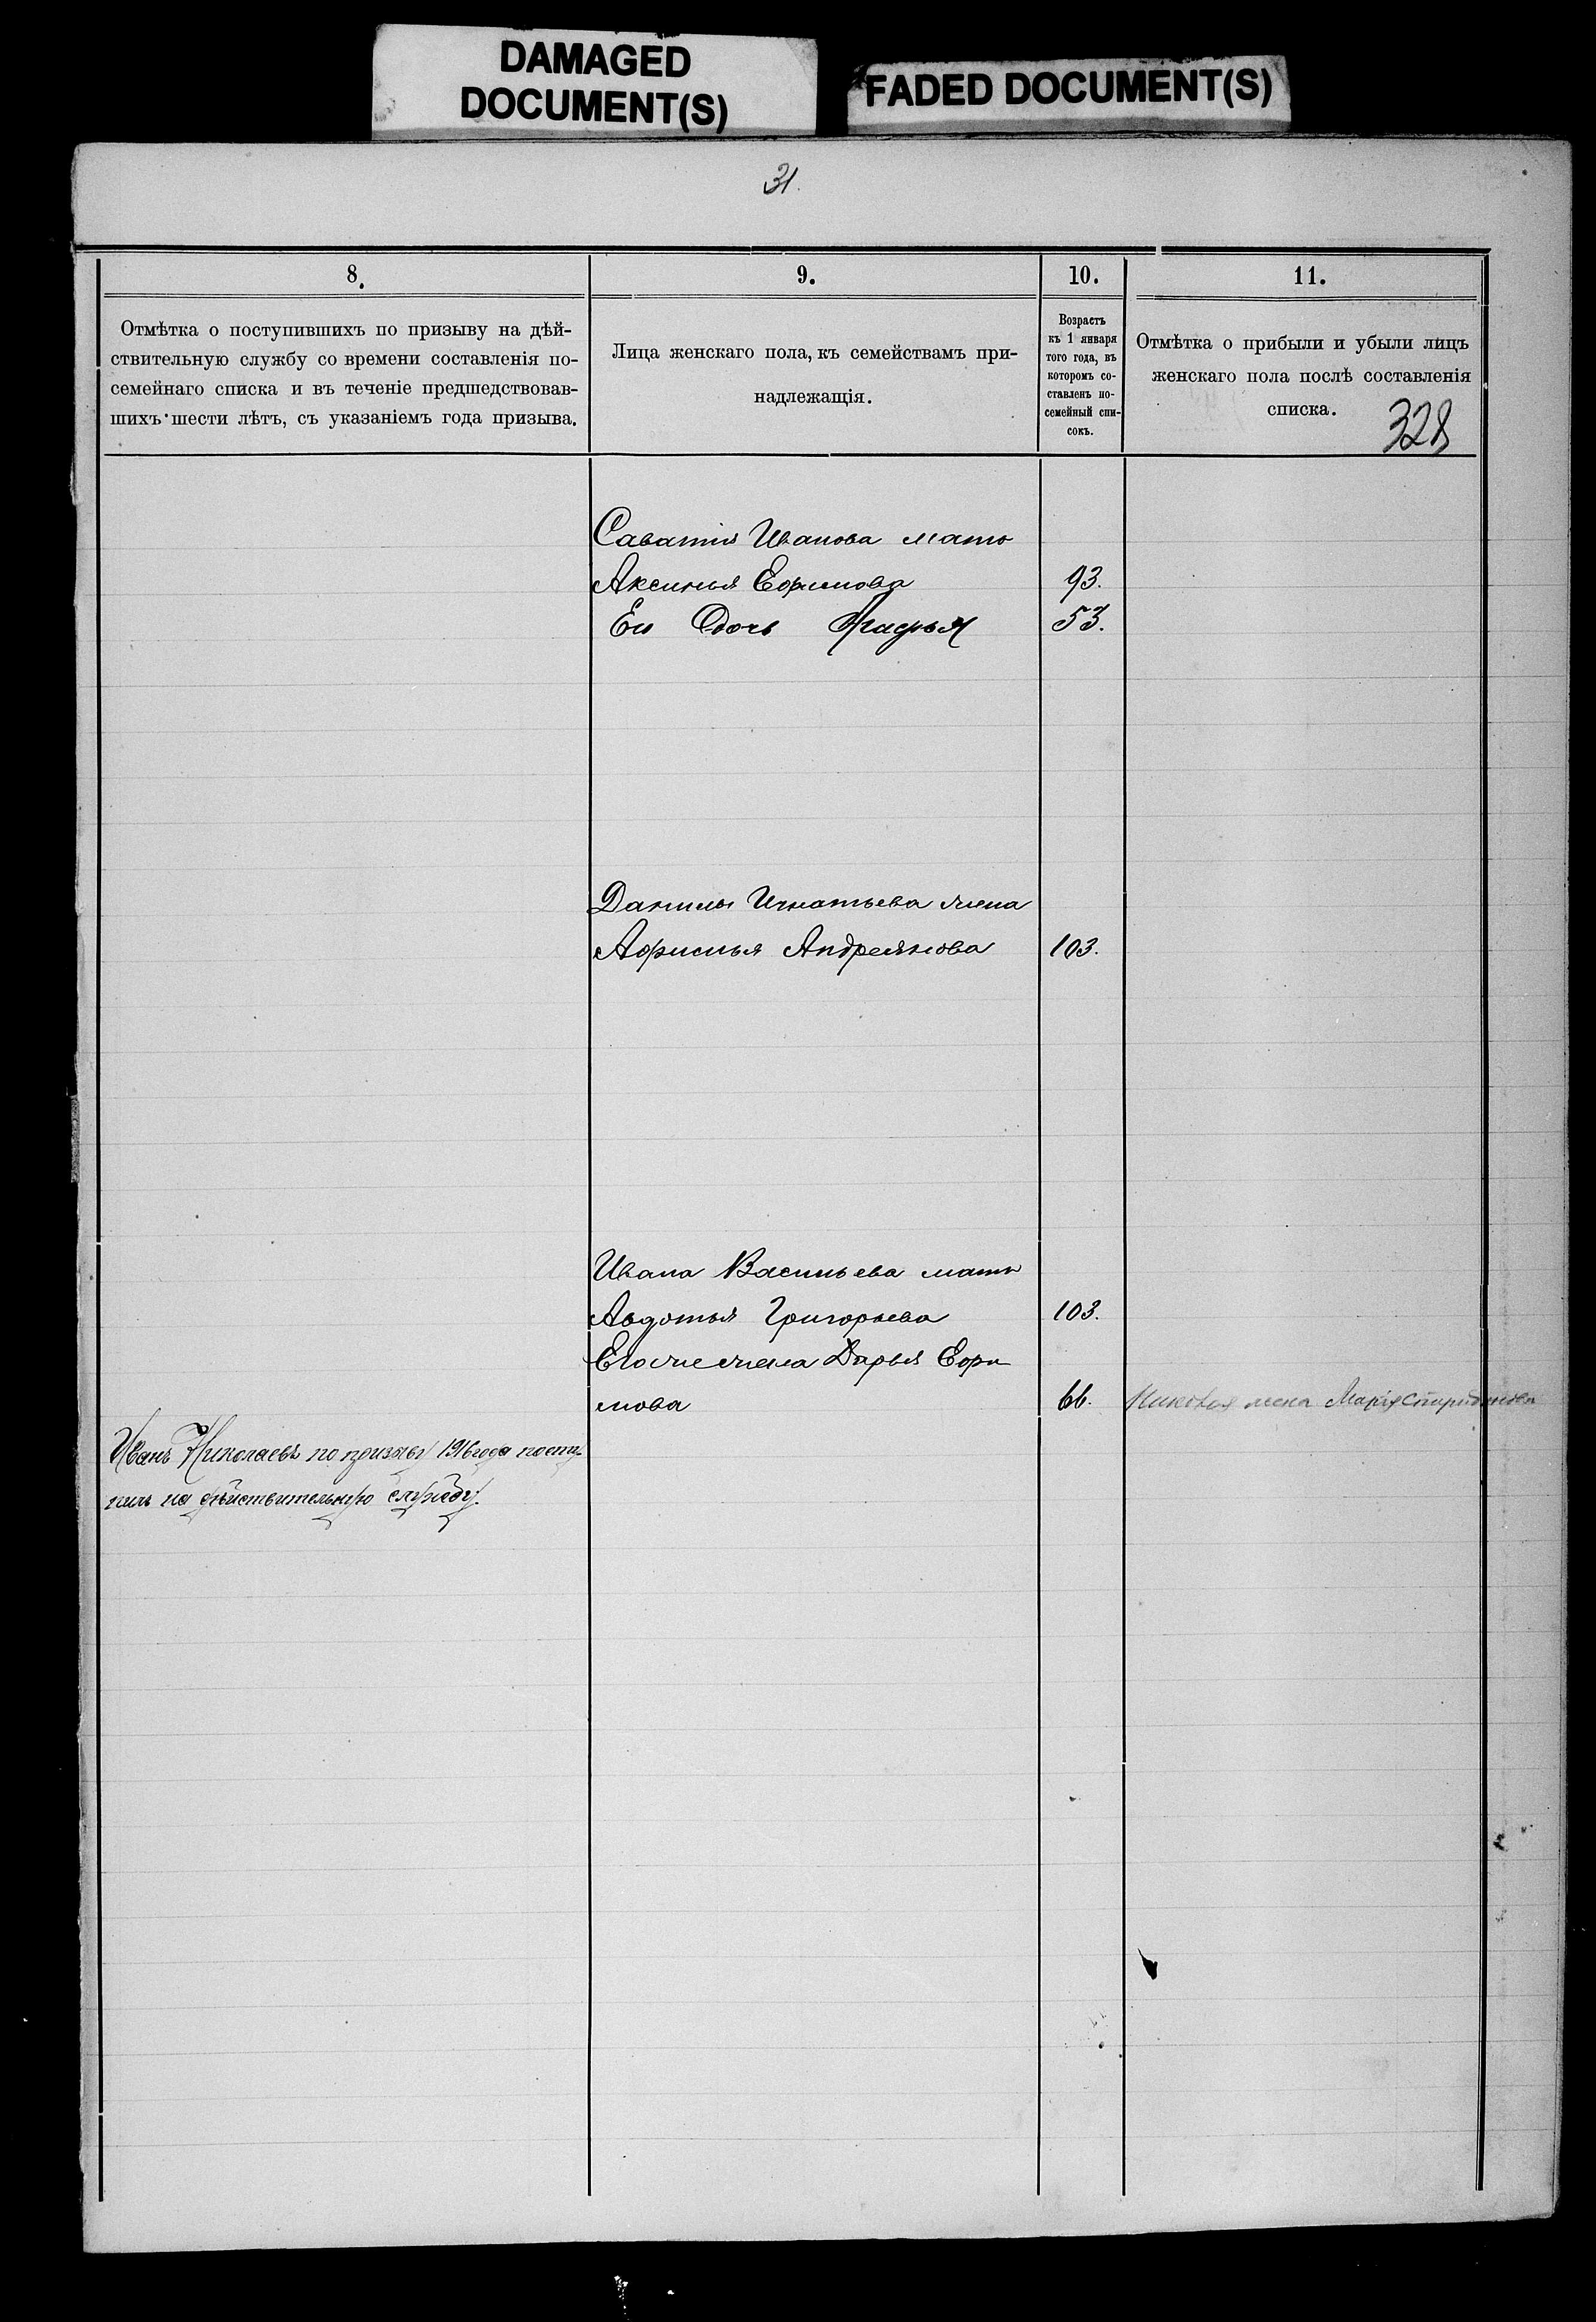 DAMAGED
DOCUMENT(S)
FADED DOCUMENT(S)
31.
8.
Отмѣтка о поступившихъ по призыву на дѣй-
ствительную службу со времени составленія по-
семейнаго списка и въ теченіе предшедствовав-
шихъ шести лѣтъ, съ указаніемъ года призыва.
9.
Лица женскаго пола, къ семействамъ при-
надлежащія.
10.
Возрастъ
къ 1 января
того года, въ
которомъ со-
ставленъ по-
семейный спи-
сокъ.
11.
Отмѣтка о прибыли и убыли лицъ
женскаго пола послѣ составленія
списка.
328
Саватія Иванова мать
Аксинья Ефимова 93.
Ея дочь 53.
Данилы Игнатьева жена
Афимья Андреянова 103.
Ивана Васильева мать
Авдотья Григорьева 103.
Его же жена Дарья Ефи
мова 66. жена Марія Спиридонова
Иванъ Николаевъ по призыву 1916 года посту-
пилъ на дѣйствительную службу.